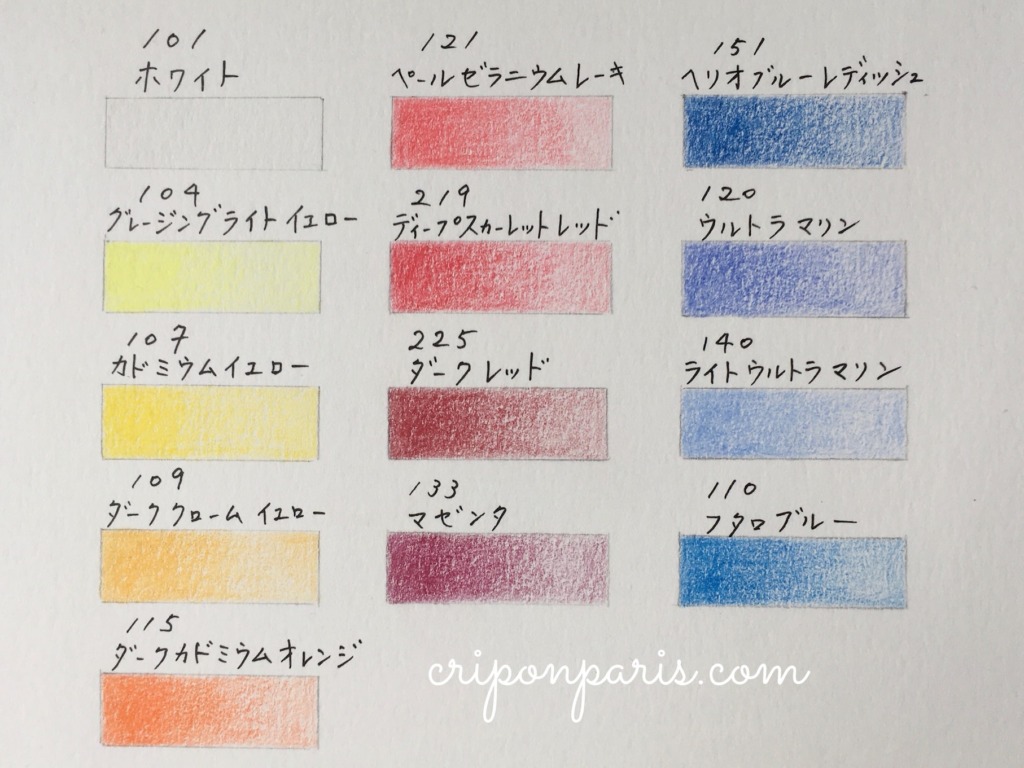 101
ホワイト
104
グレージングライトイエロー
107
カドミウムイエロー
109
ダーククロームイエロー
115
ダークカドミウムオレンジ
121
ペールゼラニウムレーキ
219
ディープスカーレットレッド
225
ダークレッド
133
マゼンタ
151
ヘリオブルーレディッシュ
120
ウルトラマリン
140
ライトウルトラマリン
110
フタロブルー
criponparis.com